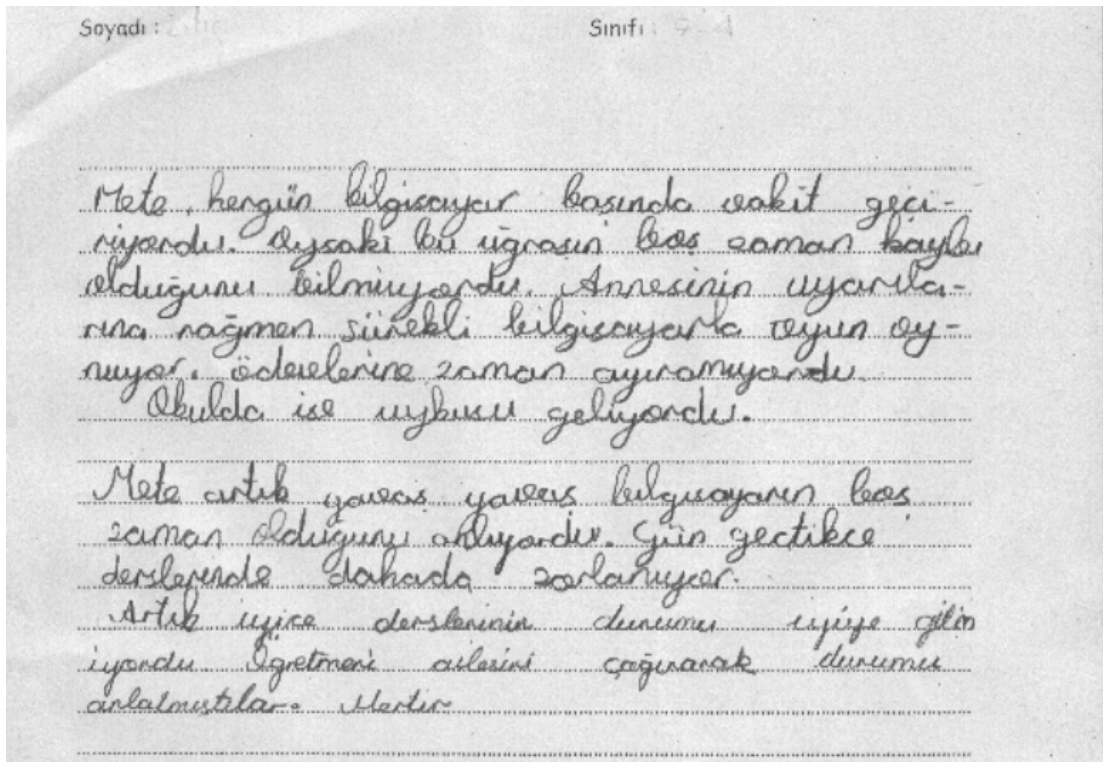 Soyadı : Sınıfı :
Mete, hergün bilgisayar başında vakit geçi-
riyordu. Oysaki bu uğraşın boş zaman kaybı
olduğunu bilmiyordu. Annesinin uyarıla-
rına rağmen sürekli bilgisayarla oyun oy-
nuyor, ödevlerine zaman ayıramıyordu.
Okulda ise uykusu geliyordu.
Mete artık yavaş yavaş bilgisayarın boş
zaman olduğunu anlıyordu. Gün geçtikçe
derslerinde dahada zorlanıyor.
Artık iyice derslerinin durumu iyiye
iyordu Öğretmeni ailesini çağırarak durumu
anlatmıştılar.